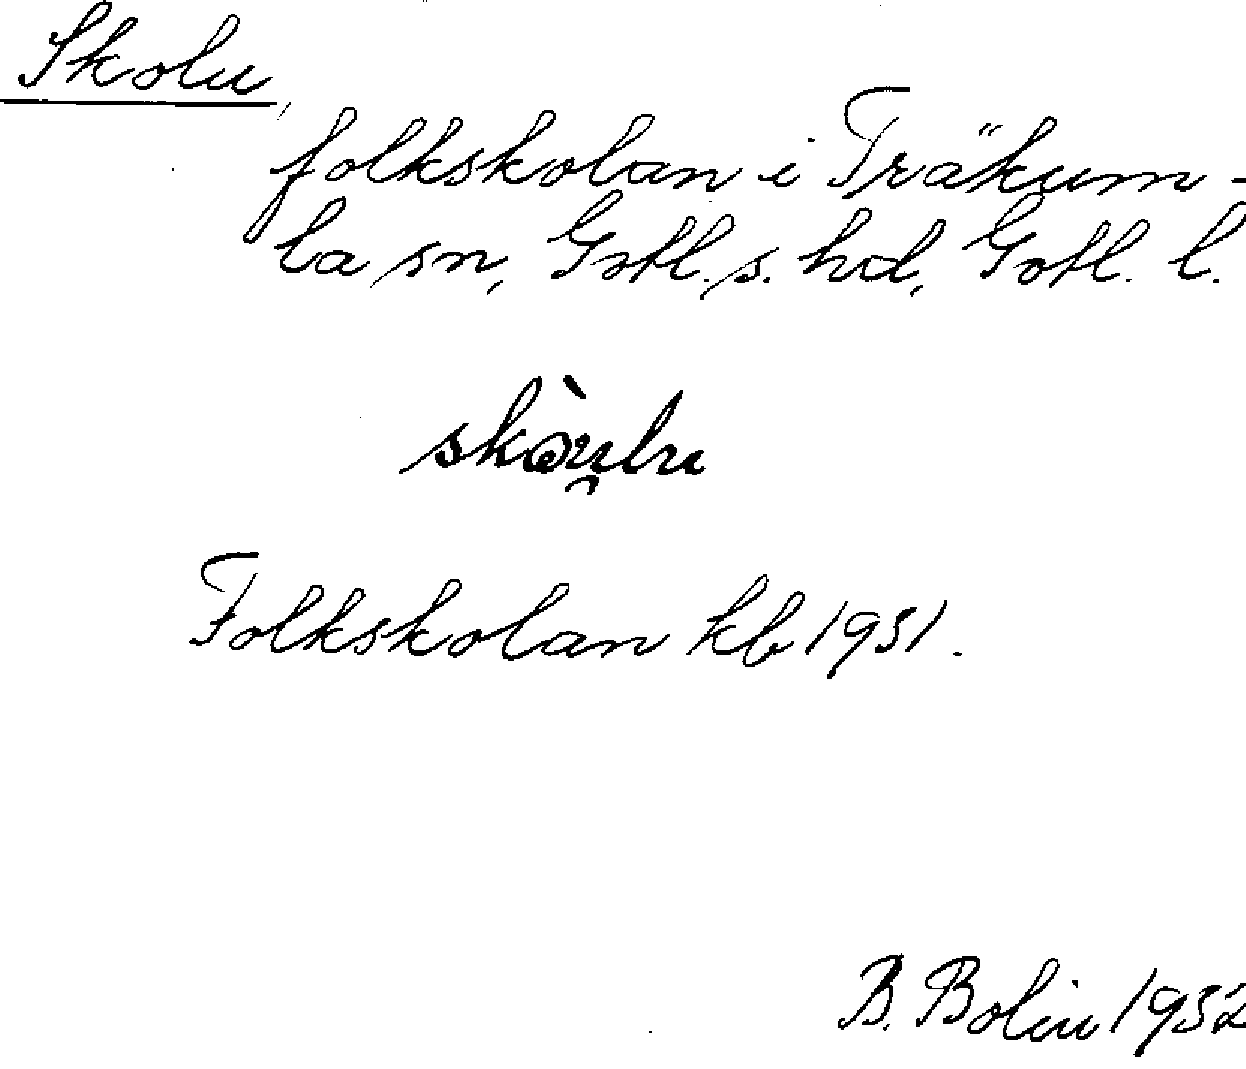 Skolu,
folkskolan i Träkum-
la sn, Gotl. s. hd, Gotl. l.
skòu̯lu
Folkskolan kb 1931.
B. Bolin 1932